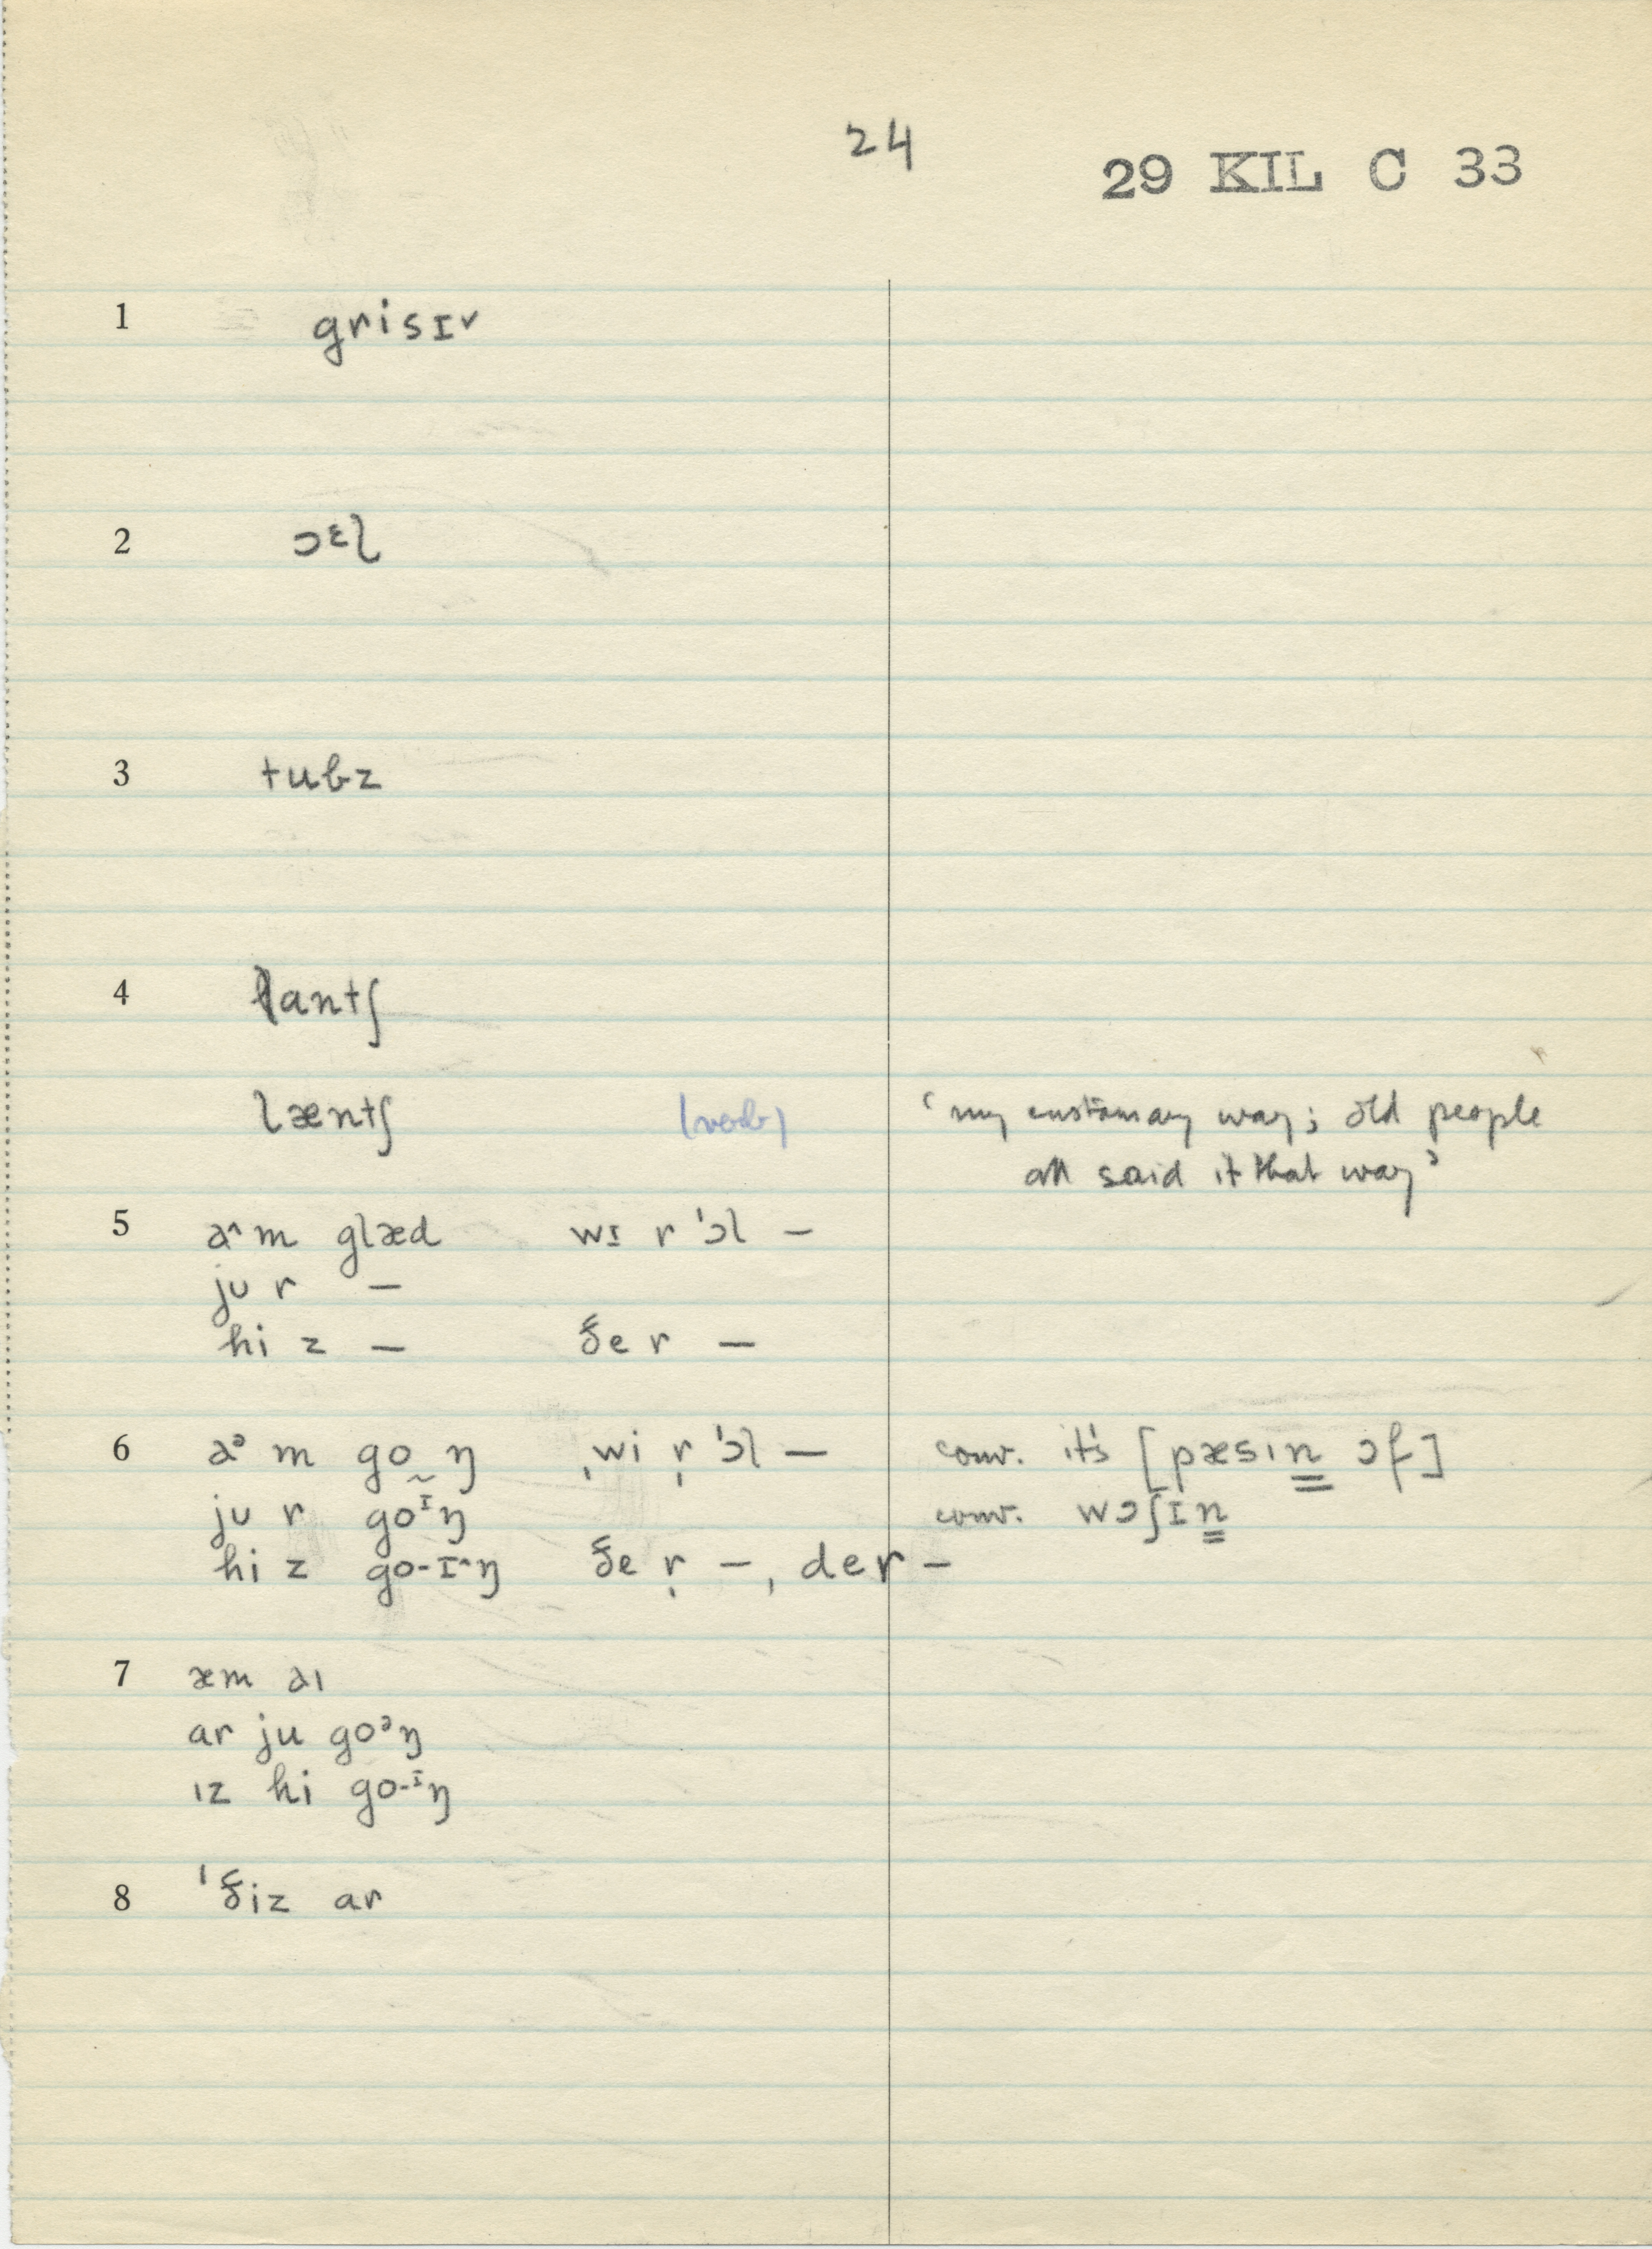 24
29 KIL C 33
1 grisɪ˅
2 ɔᵋl
3 tubz
4 lantʃ
læntʃ (verb) ‘my customary way; old people
all said it that way’
5 a˄m glæd wɪ r ˈɔl –
ju r –
hi z – ðe r –
6 aᵊ m go͜ ŋ ˌwi r̩ ˈɔl – conv. it's [pæsın̳ ɔf]
ju r goᶦŋ conv. wɔʃɪn̳
hi z go-ɪ˄ŋ ðe r̩ –, der –
7 æm aı
ar ju goᵊŋ
ız hi go-ᶦŋ
8 ˈðiz ar